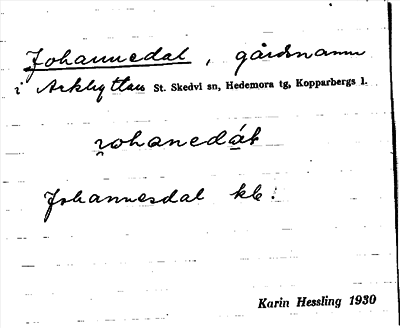 Johannedal, gårdsnamn
i Arkhyttan St. Skedvi sn, Hedemora tg, Kopparbergs l.
Johannesdal kb.
Karin Hessling 1930